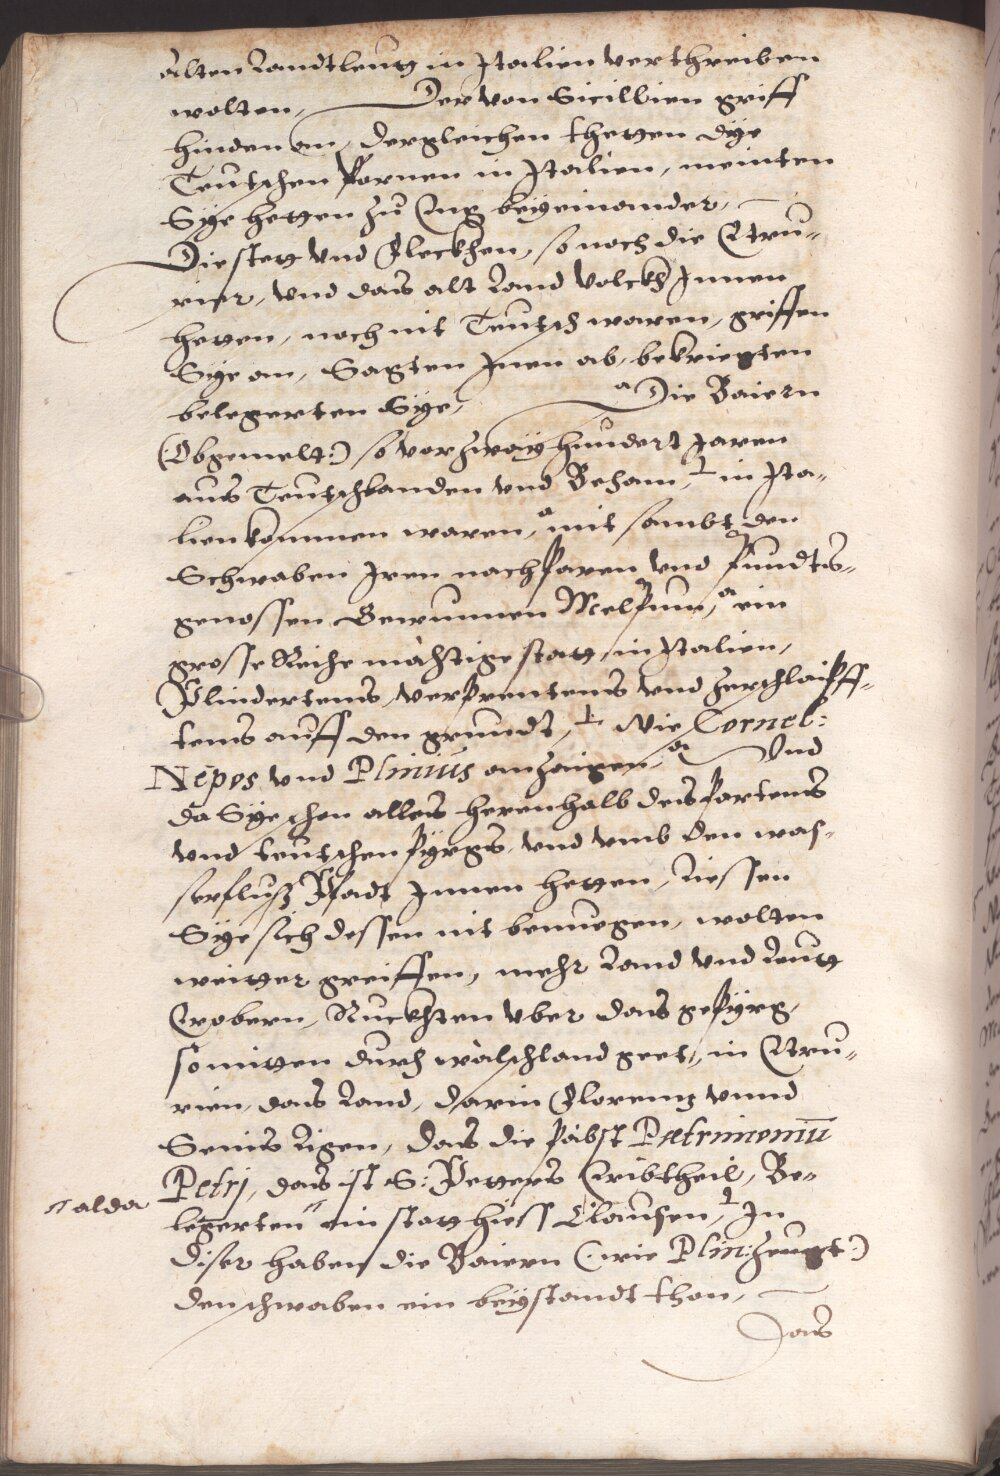 alten Landtleutt in Italien verthreiben
wolten, Der von Sicillien griff
hinden an, dergleichen thetten dÿe
Teutschen fornen in Italien, meinten
Sÿe hetten zu Eng beÿeinander,
Die stett vnd Fleckhen, so noch die Etru„
rier, vnd das alt Land Volckh Innen
hetten, noch nit Teutsch waren, griffen
Sÿe an, Sagten Inen ab, bekriegten
belegerten Sÿe, a Die Baiern
(:Obgemelt:) so vor zwaÿ hundert Jaren
aus Teutschlanden vnd Beham, in Ita„
lien kommen waren, a mit sambt den
Schwaben Iren nachparen vnd pundts„
genossen Gewunnen Melpum, a ein
grosse Reihe mächtige statt in Italien,
Plindertens, verprentens vnd zerschlaipff„
tens auff den grundt, Wie Cornel:
Nepos vnd Plinius anzaigen, a Vnd
da Sÿe schon alles herenhalb des partens
vnd teutschen pÿrgs, vnd vmb den was„
serflusz Pfadt Innen hetten, Liessen
Sÿe sich dessen nit benuegen, wolten
weitter greiffen, mehr Land vnd Leutt
Erobern, Ruckhten vber das gepÿrg,
so mitten durch wälschland geet, in Etru„
rien, das Land, darin Florentz vnnd
Senis ligen, das die päbst Patrimoniū
Petrj, das ist S: Petters Eribtheil, Be„
legerten " ein statt hiess Clausen, In
" alda
diser haben die Baiern (:wie Plin: zeugt:)
den schwaben ein beÿstandt than,
Das